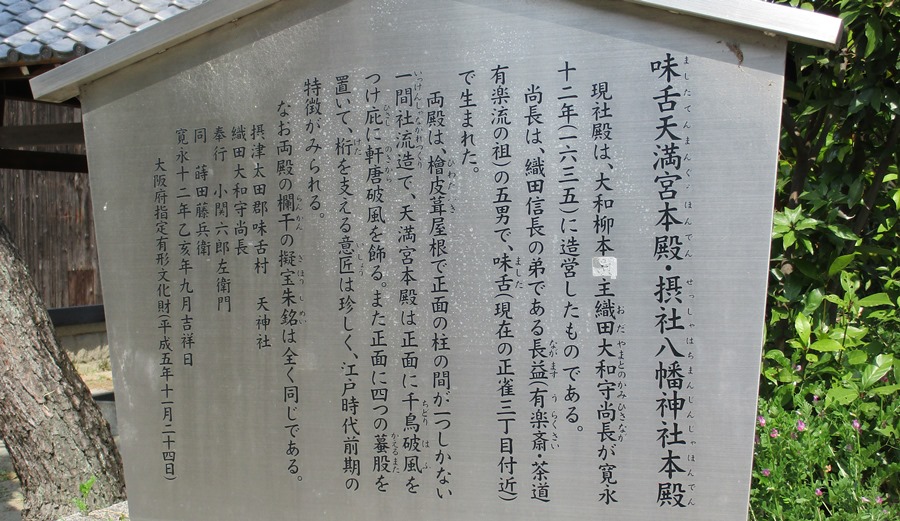 味舌天満宮本殿・摂社八幡神社本殿
現社殿は、大和柳本 主織田大和守尚長が寛永
十二年(一六三五)に造営したものである。
尚長は、織田信長の弟である長益(有楽斎・茶道
有楽流の祖)の五男で、味舌(現在の正雀三丁目付近)
で生まれた。
両殿は、檜皮葺屋根で正面の柱の間が一つしかない
一間社流造で、天満宮本殿は正面に千鳥破風を
つけ庇に軒唐破風を飾る。また正面に四つの蟇股を
置いて、桁を支える意匠は珍しく、江戸時代前期の
特徴がみられる。
なお両殿の欄干の擬宝朱銘は全く同じである。
摂津太田郡味舌村 天神社
織田大和守尚長
奉行 小関六郎左衛門
同 蒔田藤兵衛
寛永十二年乙亥年九月吉祥日
大阪府指定有形文化財(平成五年十一月二十四日)